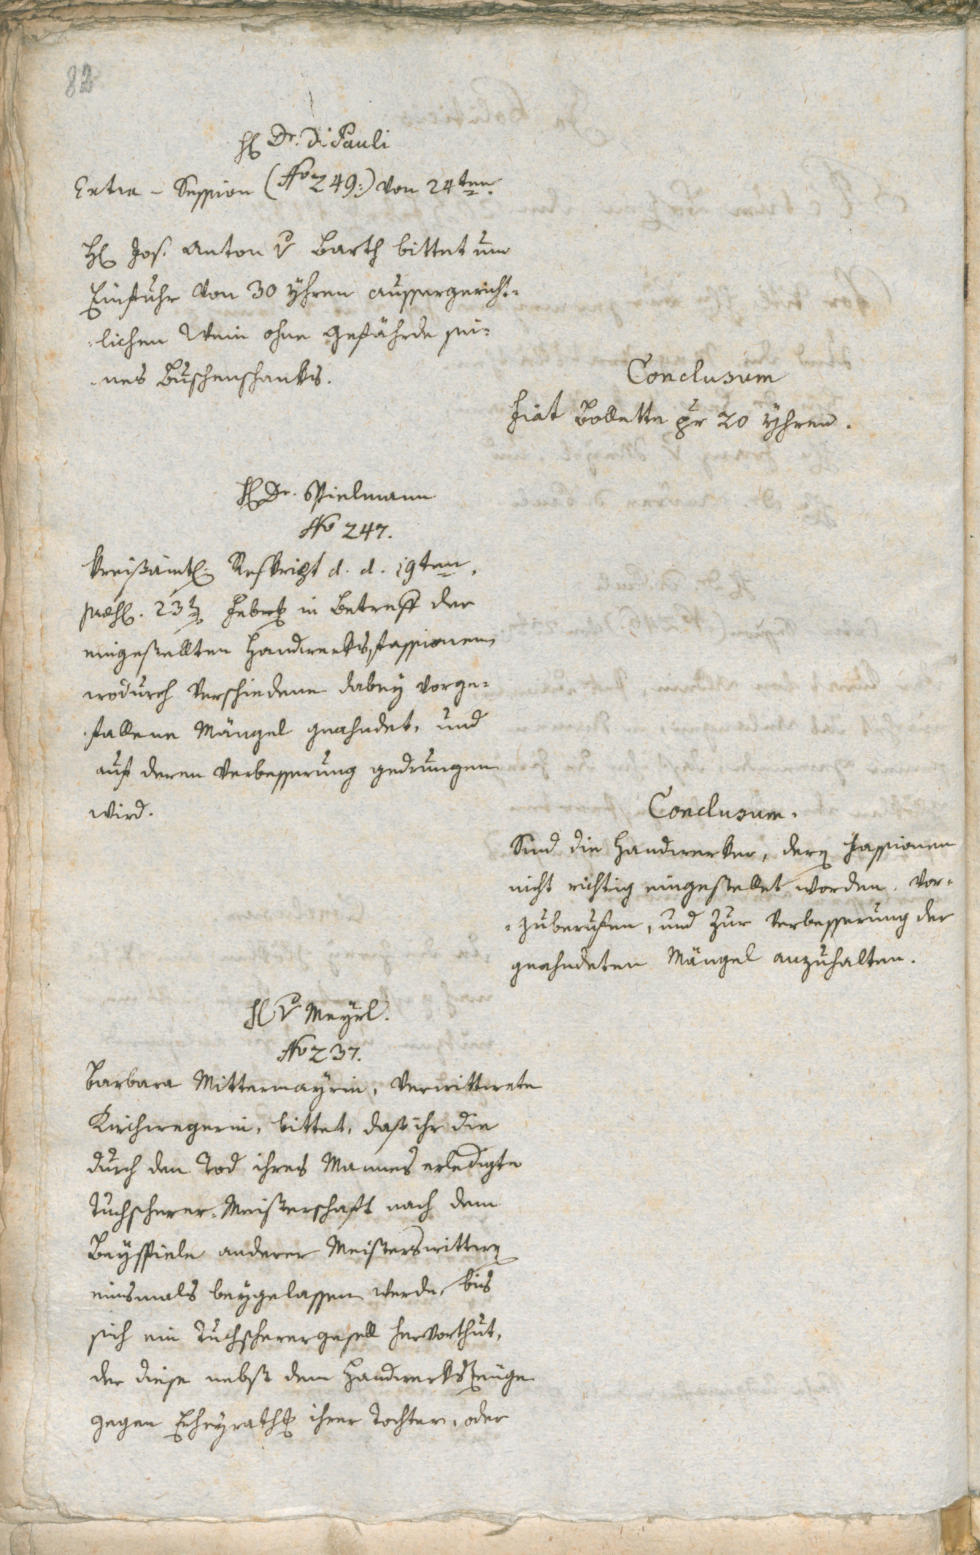 82
H Dr. Di Pauli
Extra - Session (No 249:) von 24ten.
H Jos. Anton v Barth bittet um
Einfuhr von 30 Yhren aussergericht-
-lichen Wein ohne Gefährde sei-
-nes Buschenschanks.
Conclusum
Fiat Bollette pr 20 Yhren.
H Dr. Spielmann
No 247.
Kreißämtl. Reskript d. d. 19ten,
præs. 23t Febr in Betreff der
eingestellten Handwerksfassionen
wodurch verschiedene dabey vorge-
-fallene Mängel geahndet, und
auf deren Verbesserung gedrungen
wird.
Conclusum.
Sind die Handwerker, deren Fassionen
nicht richtig eingestellet worden, vor-
-zuberufen, und zur Verbesserung der
geahndeten Mängel anzuhalten.
H v Meyrl.
No 237.
Barbara Mittermayrin, verwittwete
Kirchwegerin, bittet, daß ihr die
durch den Tod ihres Mannes erledigte
Tuchscherer-Meisterschaft nach dem
Beyspiele anderer Meisterswittwen
einsmals beygelassen werde, bis
sich ein Tuchscherergesell hervorthut,
der diese nebst dem Handwerkszeuge
gegen Eheyrath ihrer Tochter, oder